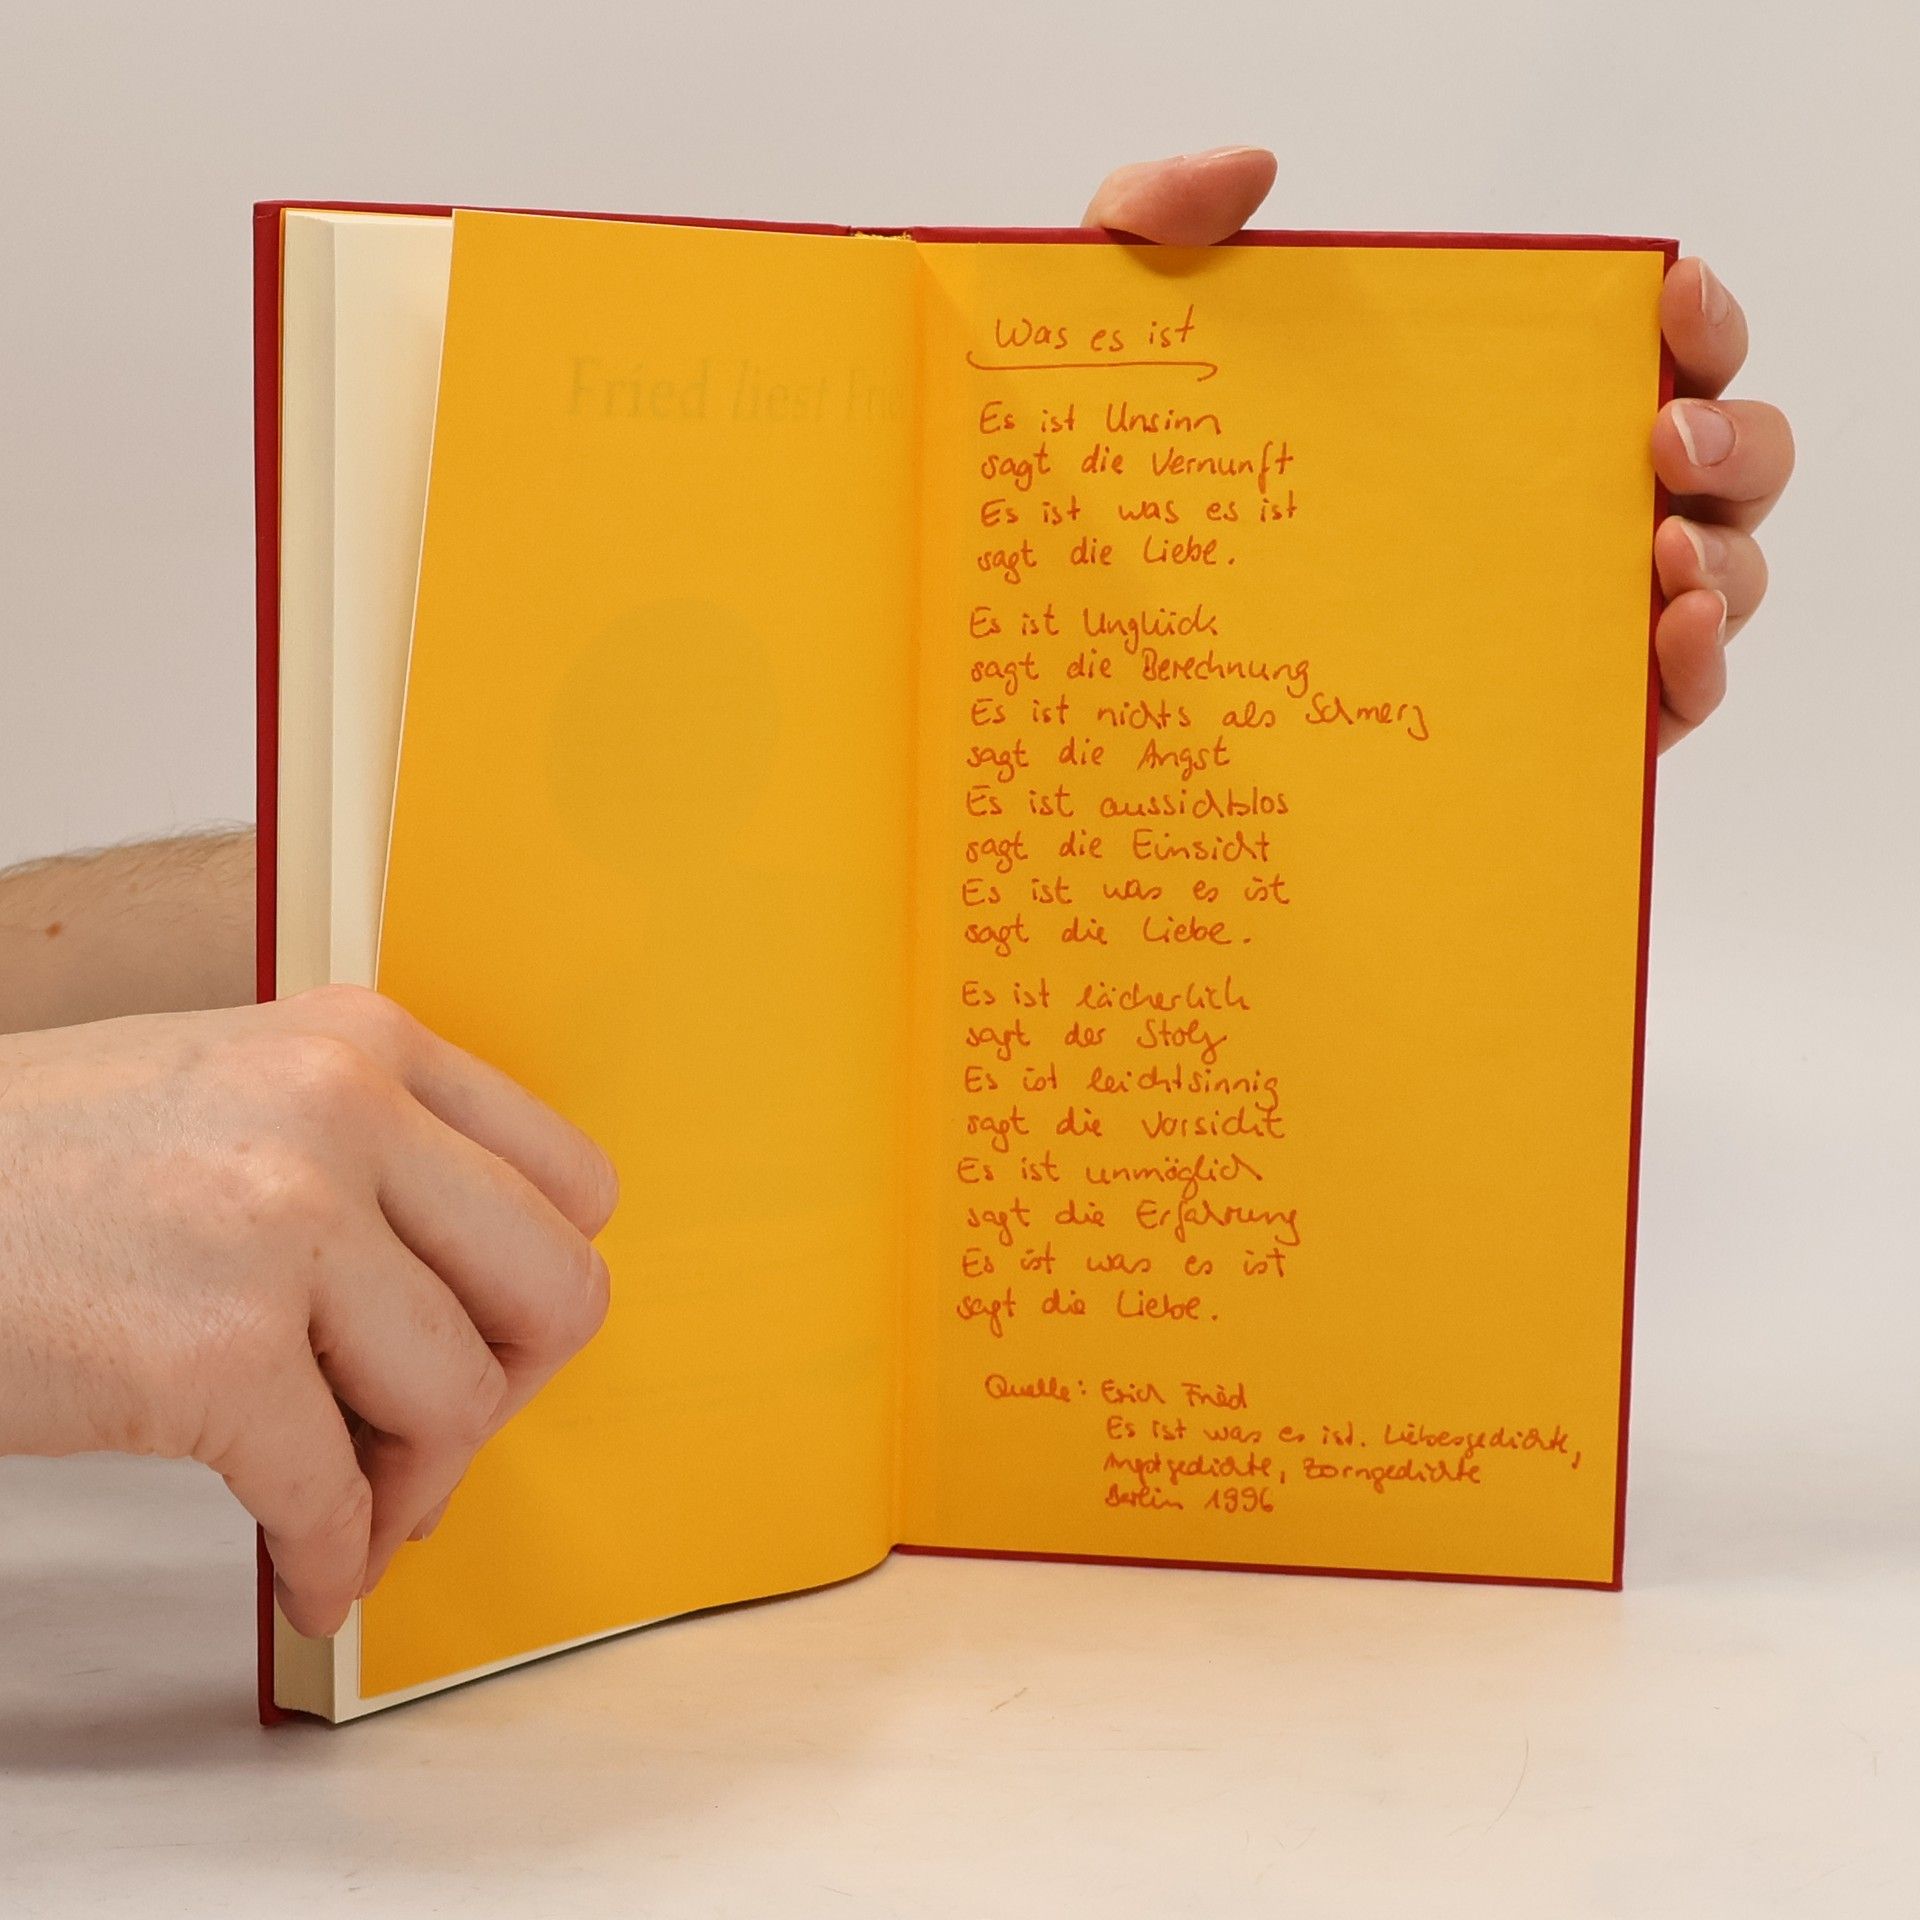 Fried liest Frie
Was es ist
Es ist Unsinn
sagt die Vernunft
Es ist was es ist
sagt die Liebe.
Es ist Unglück
sagt die Berechnung
Es ist nichts als Schmerz
sagt die Angst
Es ist aussichtslos
sagt die Einsicht
Es ist was es ist
sagt die Liebe.
Es ist lächerlich
sagt der Stolz
Es ist leichtsinnig
sagt die Vorsicht
Es ist unmöglich
sagt die Erfahrung
Es ist was es ist
sagt die Liebe.
Quelle: Erich Fried
Es ist was es ist. Liebesgedichte,
Angstgedichte, Zorngedichte
Berlin 1996